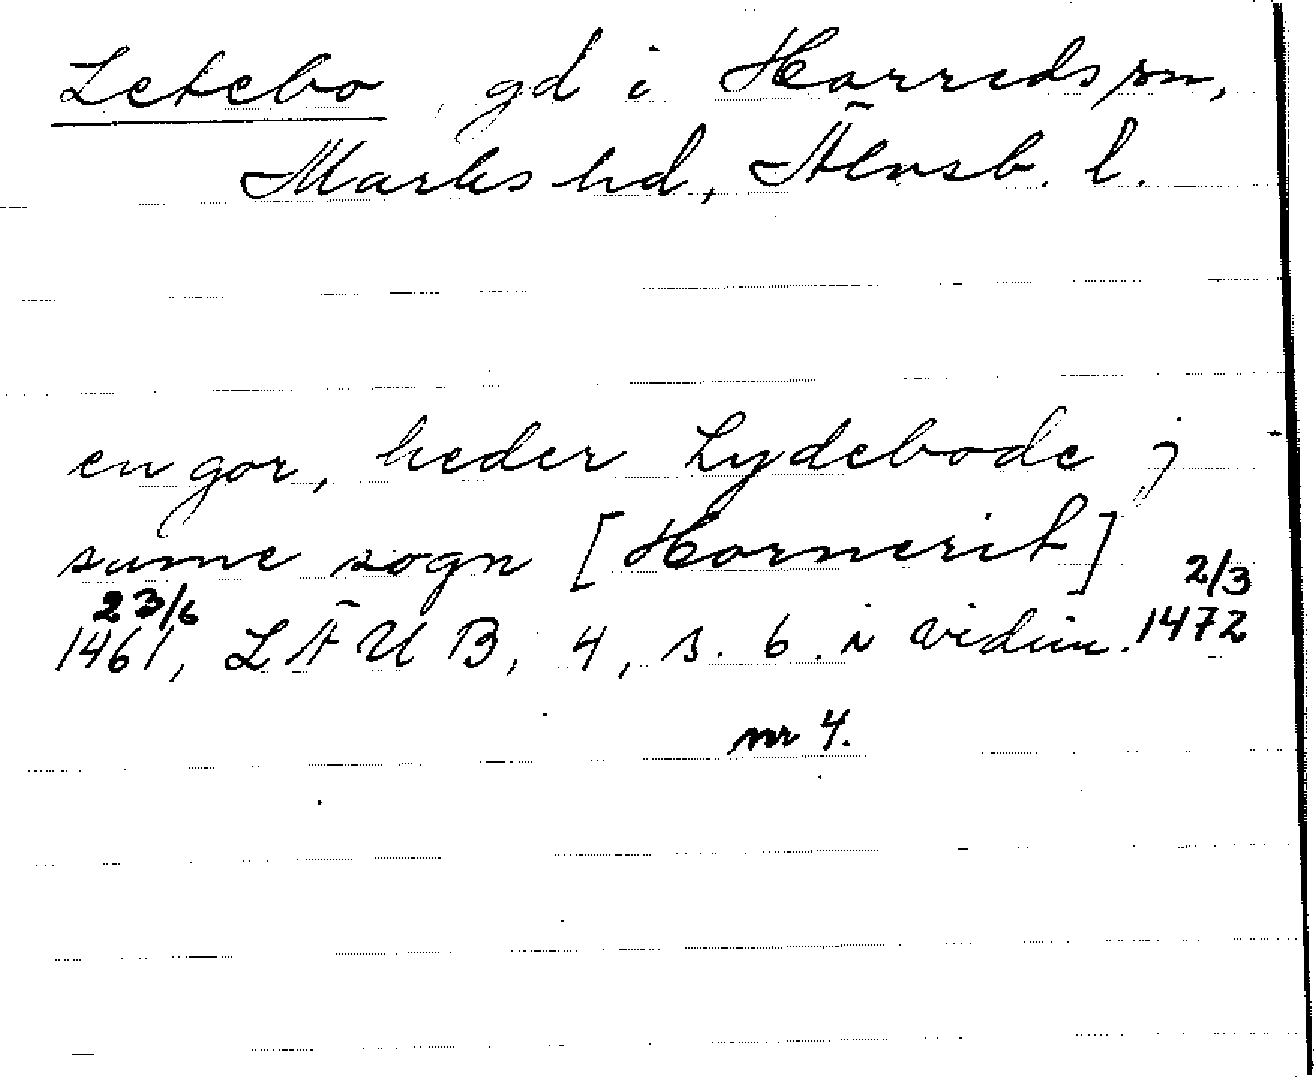 Letebo, gd i Horreds sn,
Marks hd, Älvsb. l.
en gor, heder Lydebode j
same sogn [Hornerit]
23/6 2/3
1461, LÄUB, 4, s. 6. i vidim. 1472
nr 4.